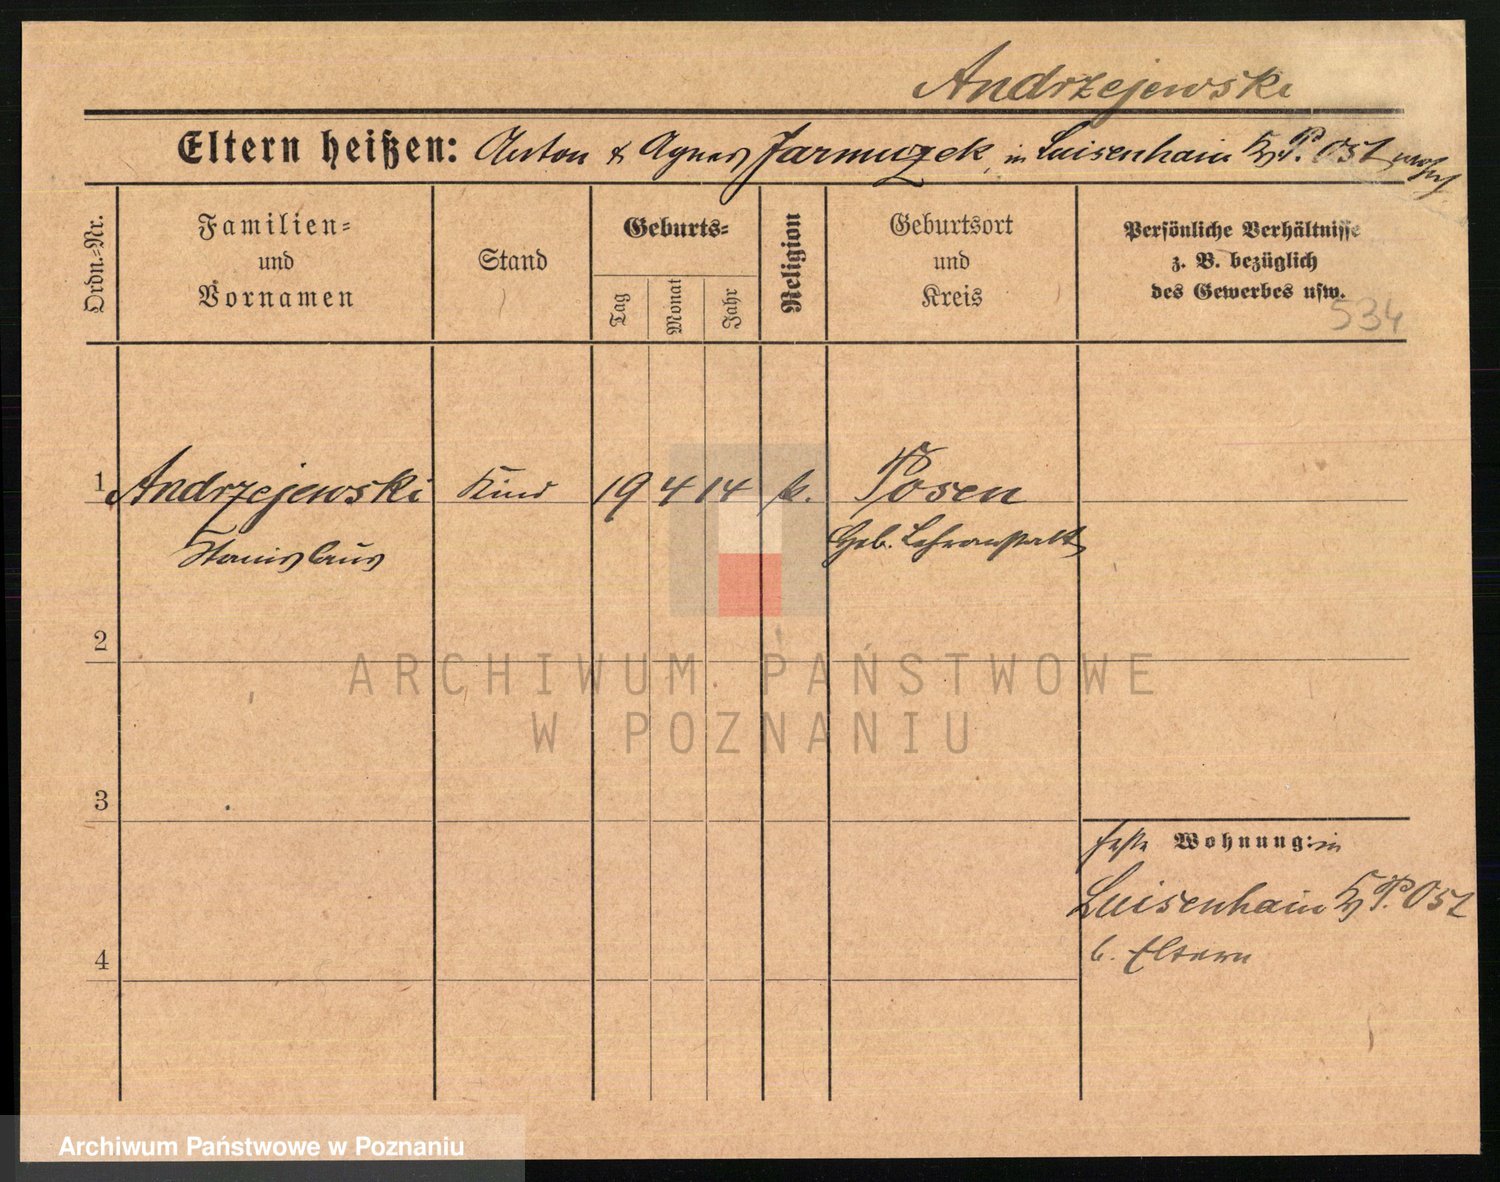 Andrzejewski
Eltern heißen: Anton & Agnes Jarmuzek, in Luisenhain Kr. P. Ost
Ordn.-Nr.
Familien-
und
Vornamen
Stand
Geburts-
Tag
Monat
Jahr
Religion
Geburtsort
und
Kreis
Persönliche Verhältnisse
z. B. bezüglich
des Gewerbes usw.
534
1 Andrzejewski Kind 19 4 14 k. Posen
Stanislaus Geb. Lehranstalt
2
ARCHIWUM PAŃSTWOWE
W POZNANIU
3
feste Wohnung: in
Luisenhain Kr. P. Ost
4 b. Eltern
Archiwum Państwowe w Poznaniu